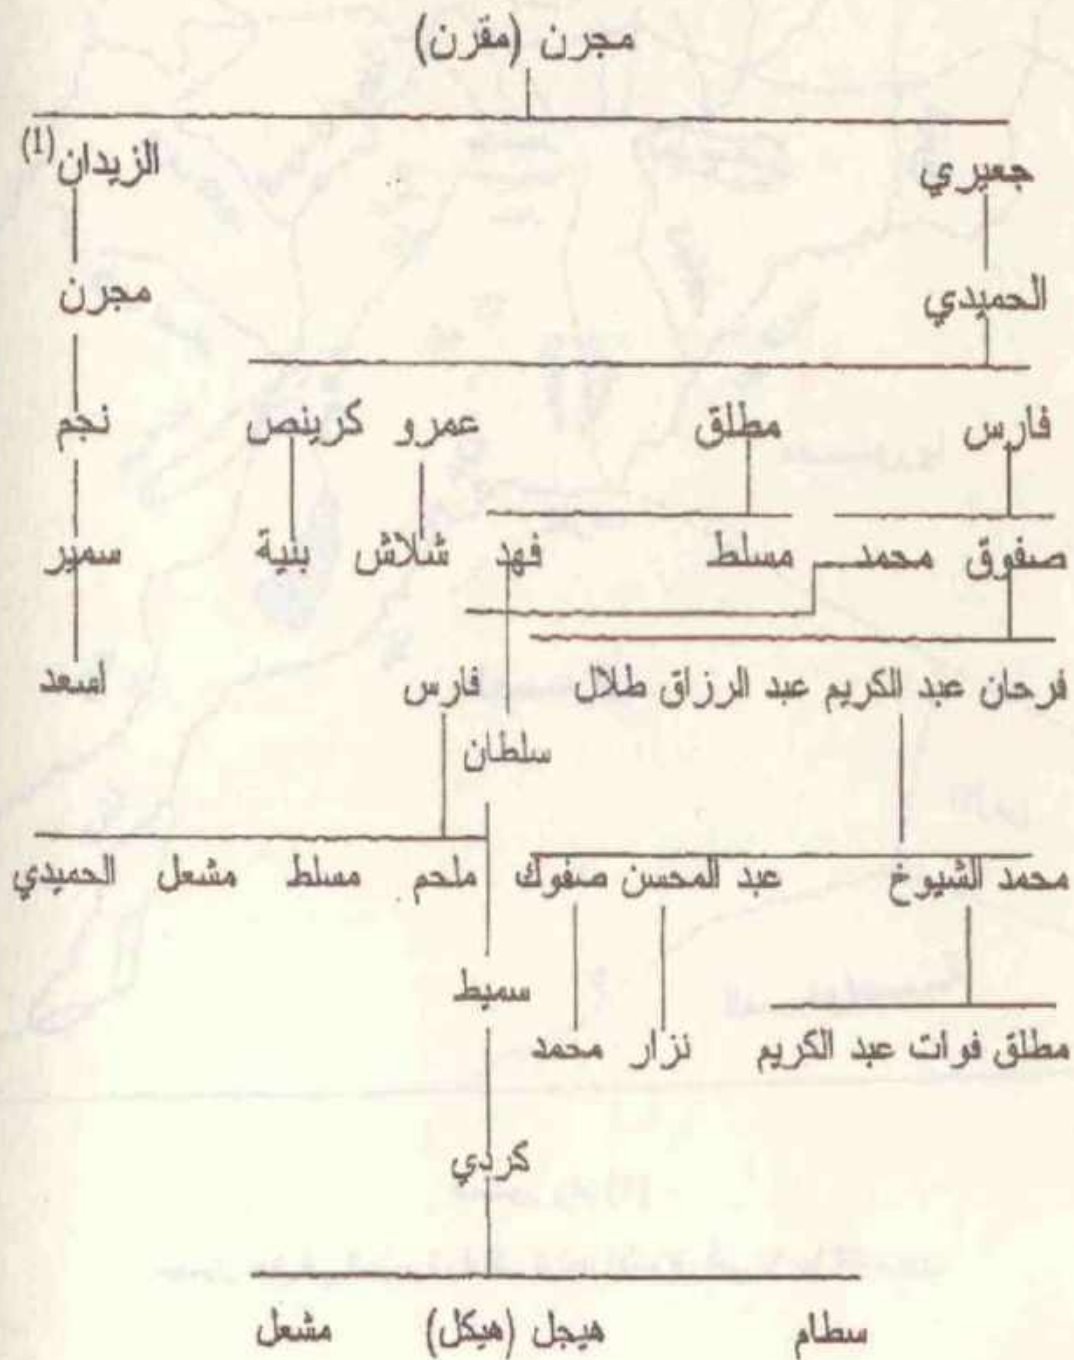 مجرن (مقرن)
جعيري الزيدان (1)
الحميدي مجرن
فارس مطلق عمرو كرينص نجم
صفوق محمد مسلط فهد شلاش بنية سمير
فرحان عبد الكريم عبد الرزاق طلال فارس اسعد
سلطان
محمد الشيوخ عبد المحسن صفوك ملحم مسلط مشعل الحميدي
سميط
مطلق فوات عبد الكريم نزار محمد
كردي
سطام هيجل (هيكل) مشعل